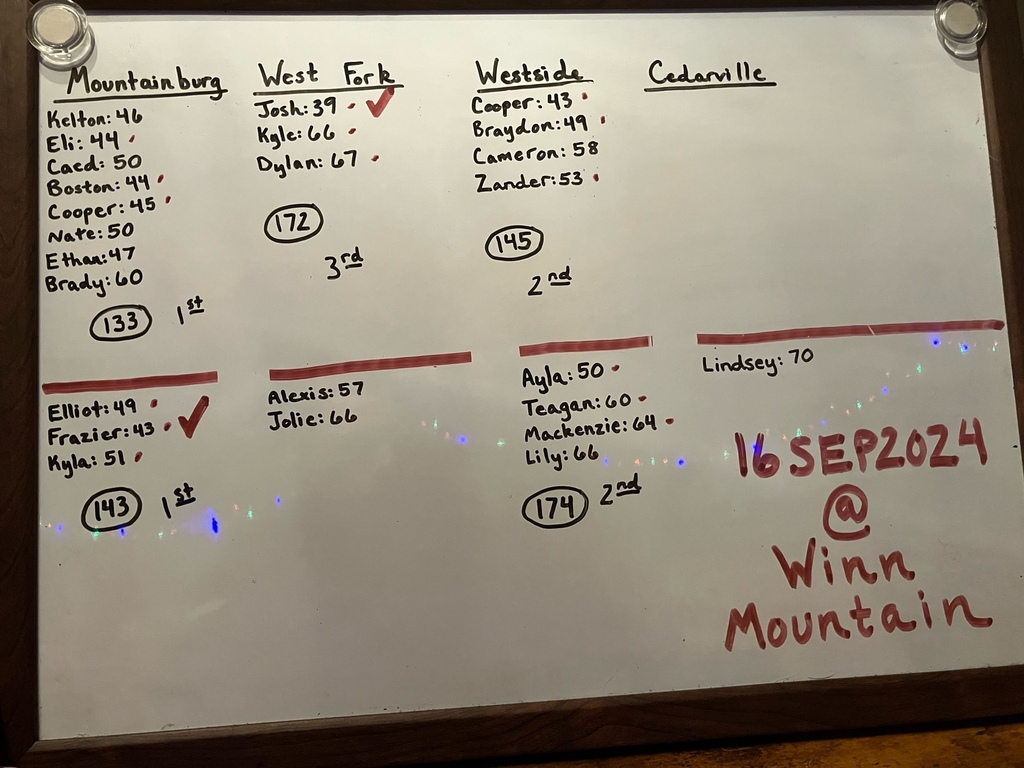 Mountainburg
Kelton: 46
Eli: 44
Caed: 50
Boston: 44
Cooper: 45
Nate: 50
Ethan: 47
Brady: 60
133 1st
Elliot: 49
Frazier: 43
Kyla: 51
143 1st
West Fork
Josh: 39
Kyle: 66
Dylan: 67
172
3rd
Alexis: 57
Jolie: 66
Westside
Cooper: 43
Braydon: 49
Cameron: 58
Zander: 53
145
2nd
Ayla: 50
Teagan: 60
Mackenzie: 64
Lily: 66
174 2nd
Cedarville
Lindsey: 70
16 SEP2024
@
Winn
Mountain